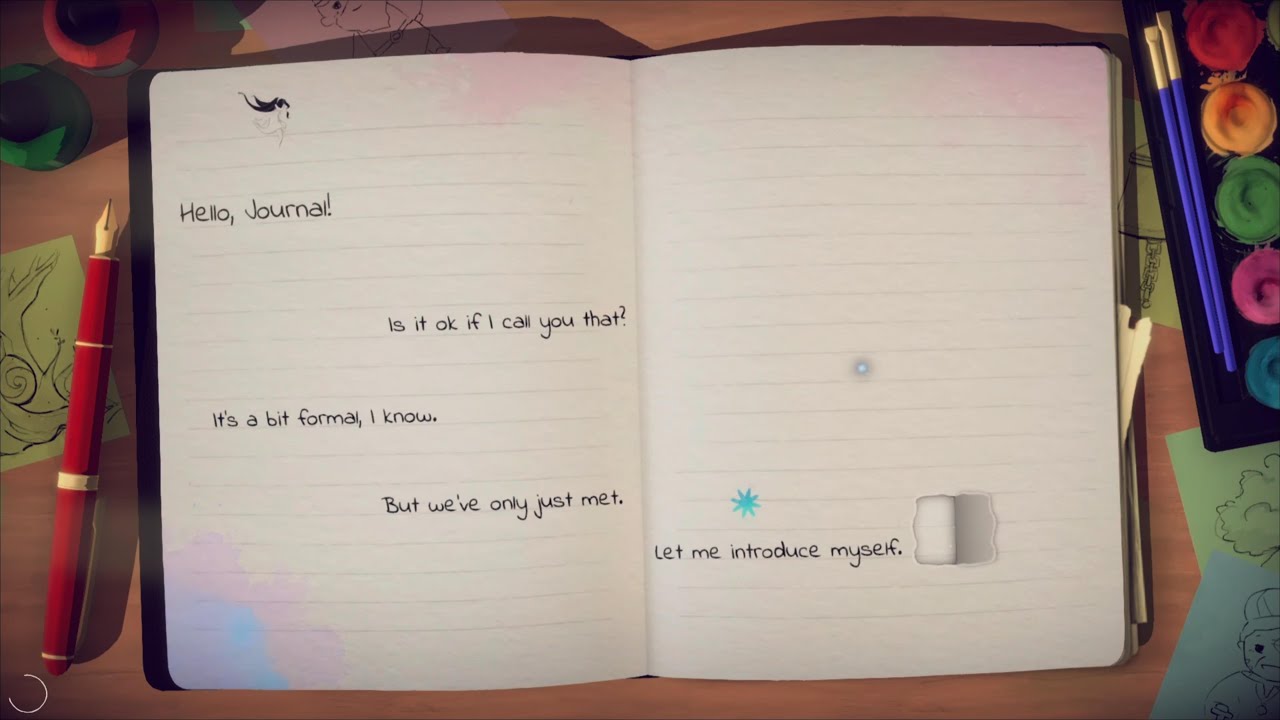 Hello, Journal!
Is it ok if I call you that?
It's a bit formal, I know.
But we've only just met.
Let me introduce myself.